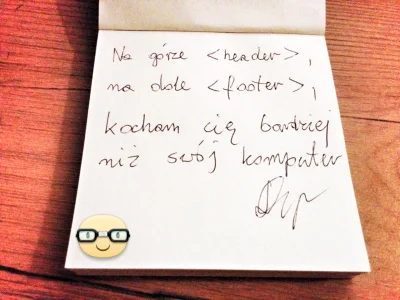 Na górze <header>,
na dole <footer>,
kocham cię bardziej
niż swój komputer